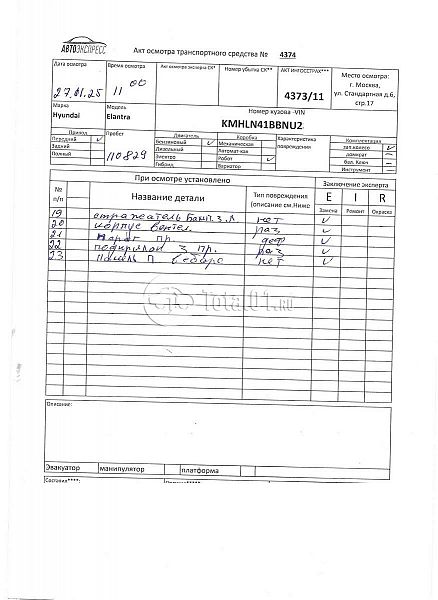 АВТОЭКСПРЕСС
Акт осмотра транспортного средства № 4374
Дата осмотра
27.01.25
Время осмотра
11 00
Акт осмотра эксперта СК*
Номер убытка СК**
АКТ ИНГОССТРАХ***
4373/11
Место осмотра:
г. Москва,
ул. Стандартная д.6,
стр.17
Марка
Hyundai
Модель
Elantra
Номер кузова -VIN
KMHLN41BBNU2
Привод
Передний ✓
Задний
Полный
Пробег
110829
Двигатель
Бензиновый ✓
Дизельный
Электро
Гибрид
Коробка
Механическая
Автомат-кая
Робот ✓
Вариатор
Характеристика
повреждения
Комплектация
зап.колесо ✓
домкрат –
бал. Ключ –
Инструмент –
При осмотре установлено
Заключение эксперта
№ п/п
Название детали
Тип повреждения
(описание см.Ниже
E I R
Замена Ремонт Окраска
19 отражатель бамп. з. Л нет ✓
20 корпус вентил раз ✓
21 порог пр. деф ✓
22 подкрылок з пр. раз ✓
23 панель П в сборе нет ✓
Total01.RU
Описание:
Эвакуатор манипулятор платформа
Составил****: